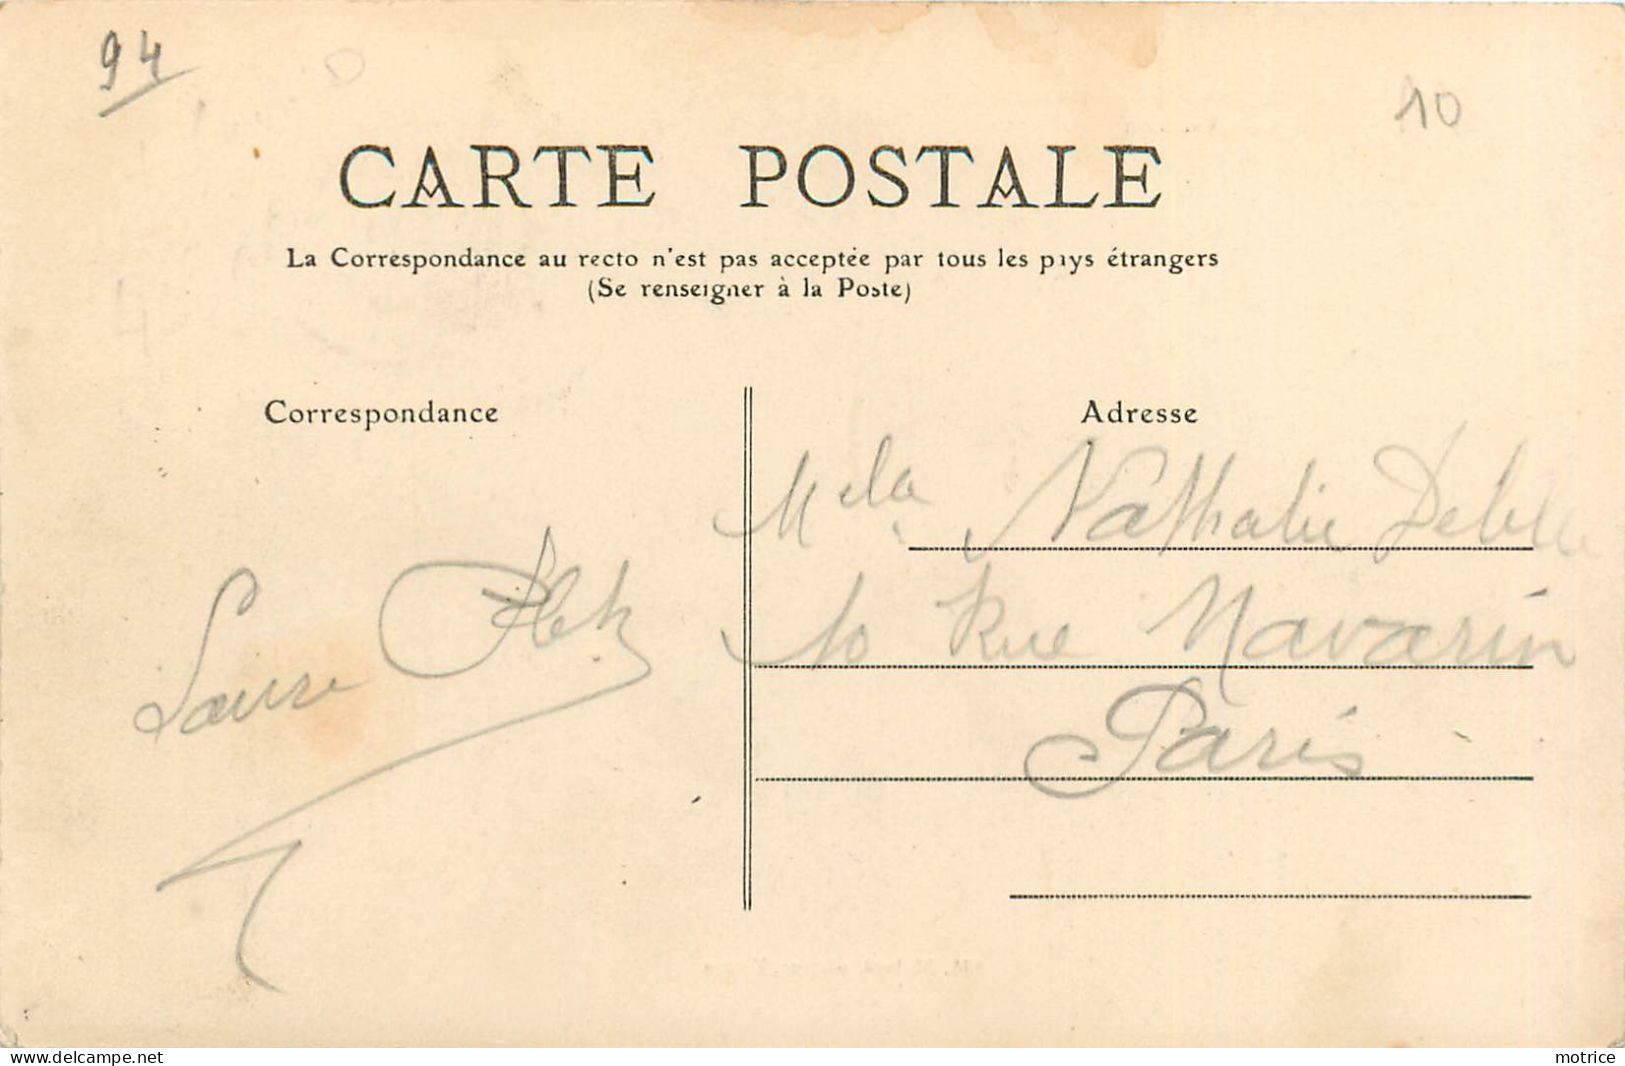 94
10
CARTE POSTALE
La Correspondance au recto n'est pas acceptée par tous les pays étrangers
(Se renseigner à la Poste)
Correspondance
Adresse
Nathalie
10 Rue Navarin
Paris
Laure
delcampe.net
motrice